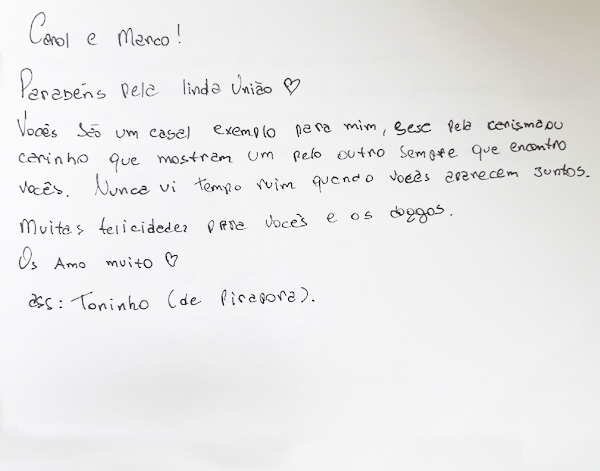 Carol e Marco!
Parabéns pela linda União ♡
Vocês são um casal exemplo para mim, sese pela carisma ou
carinho que mostram um pelo outro sempre que encontro
vocês. Nunca vi tempo ruim quando vocês aparecem juntos.
Muitas felicidades para vocês e os doggos.
Os Amo muito ♡
ass: Toninho (de Pirapora).